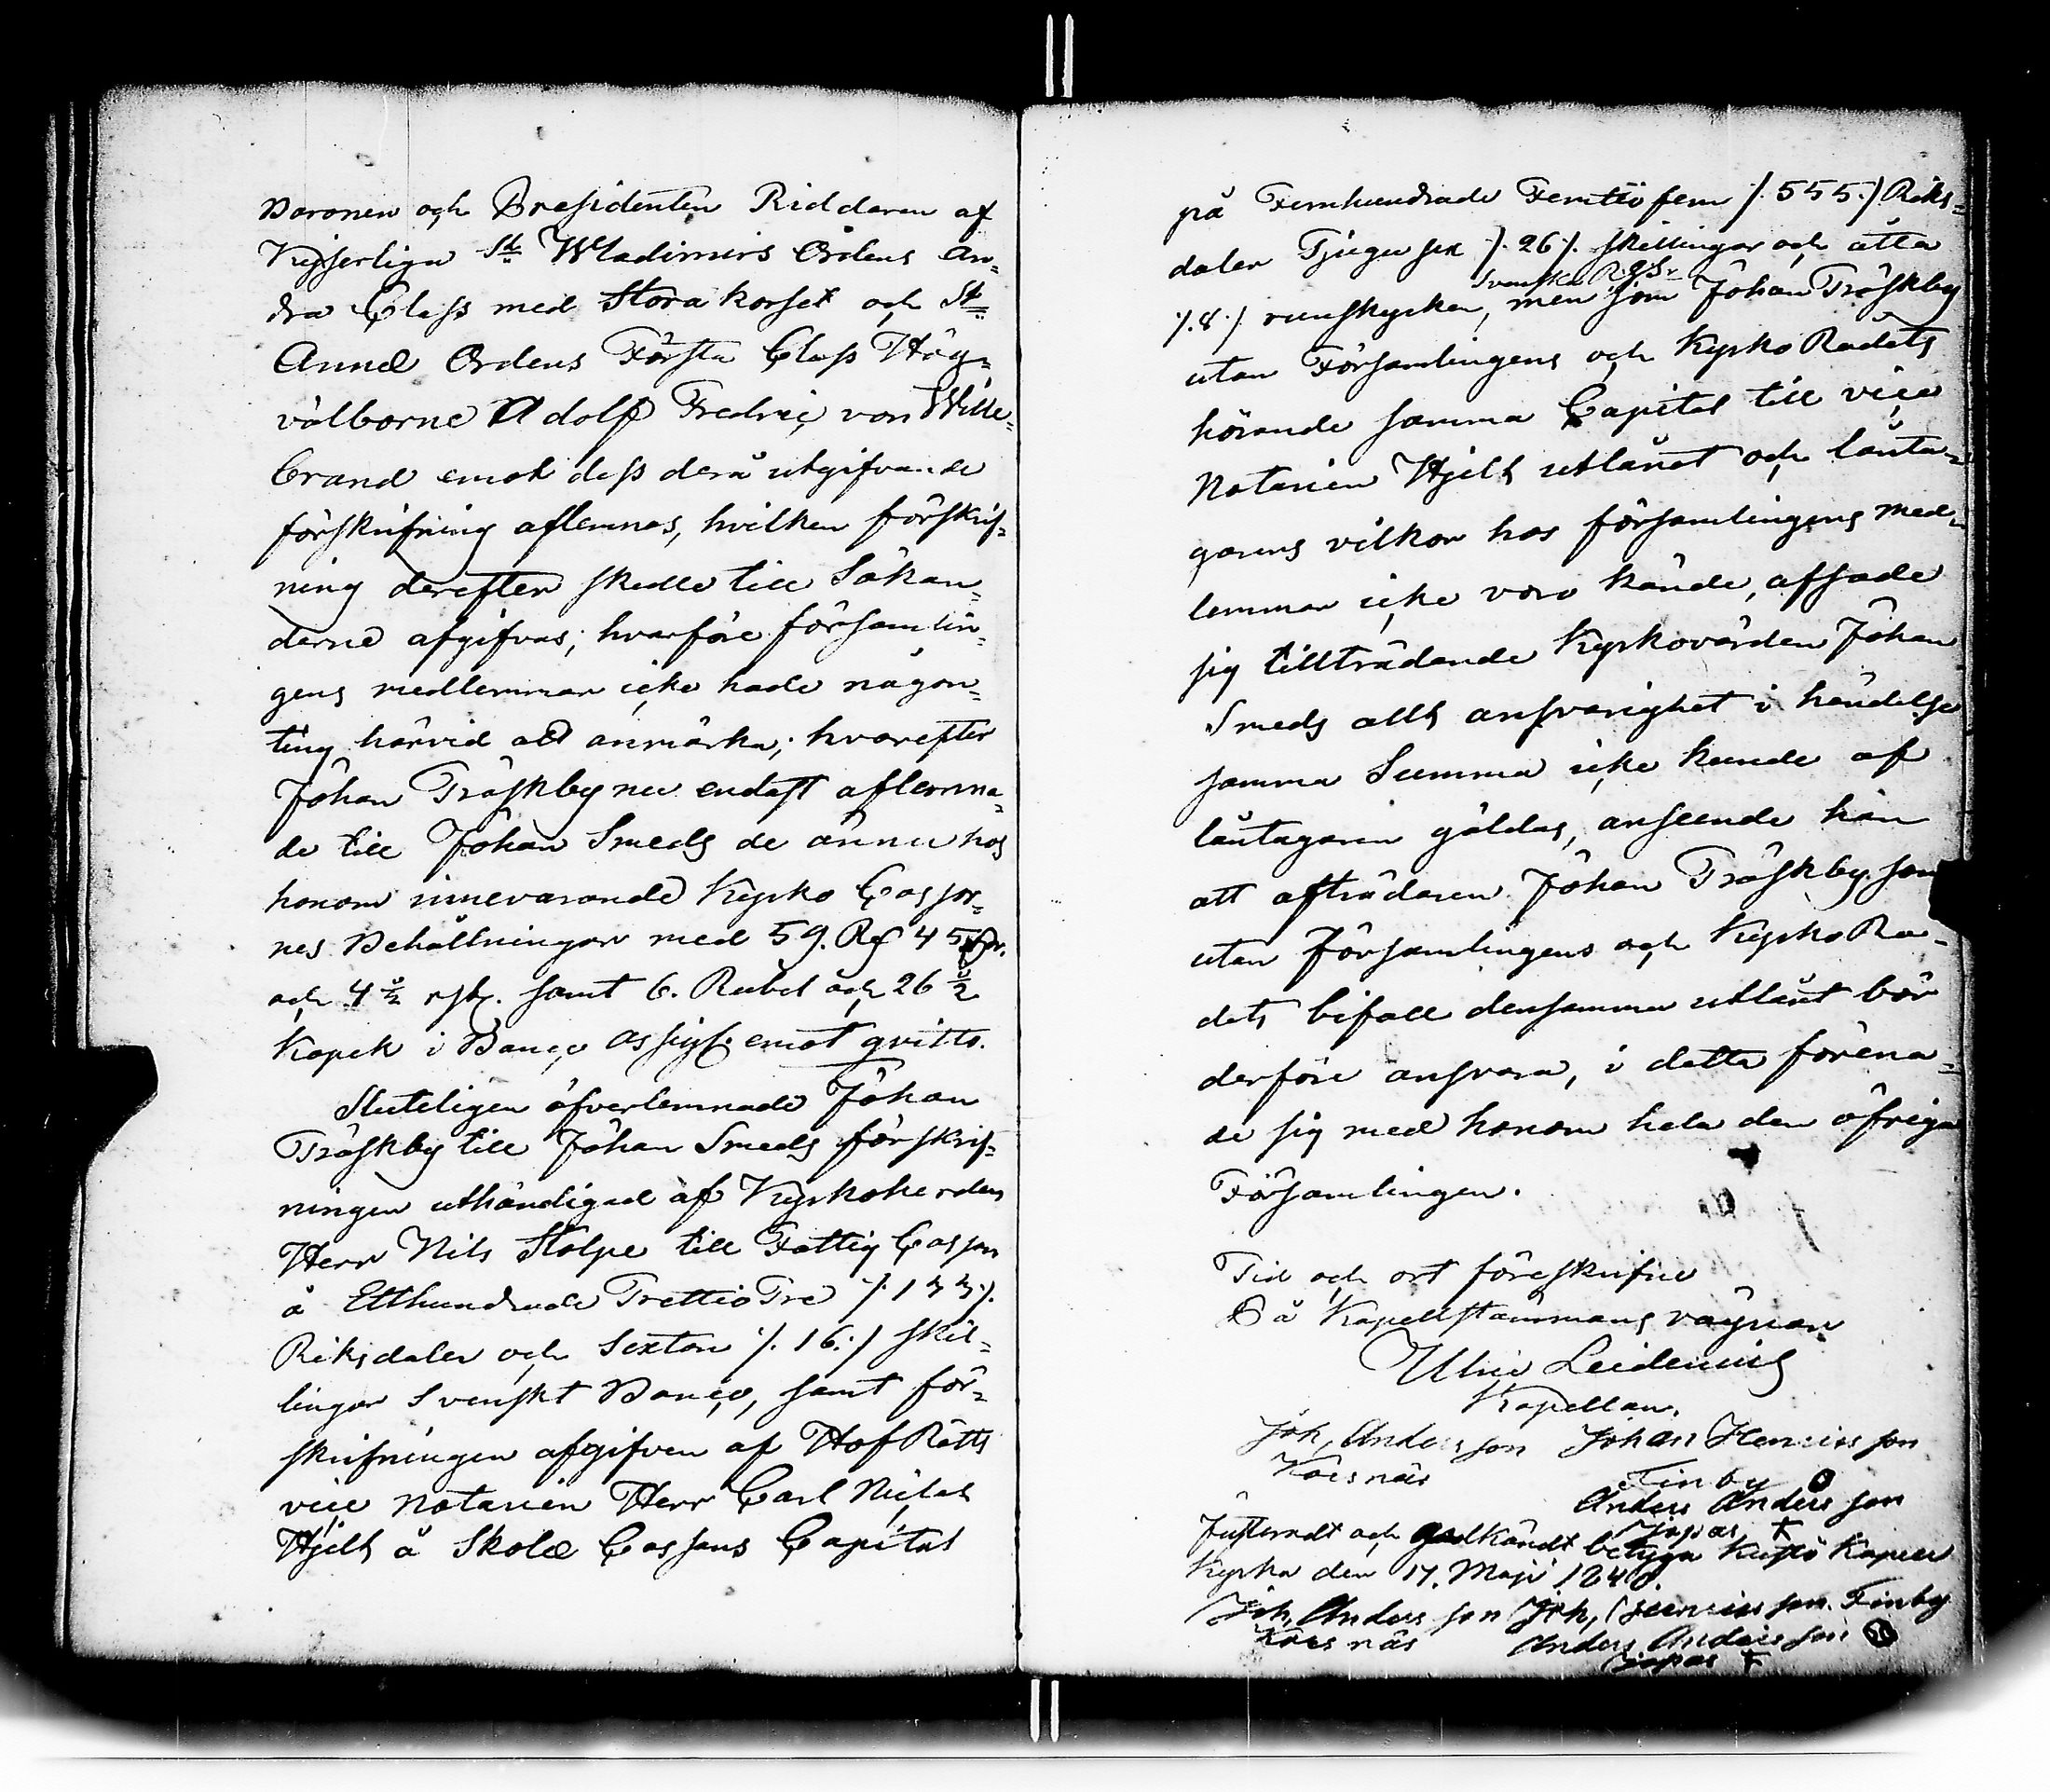 Baronen och Presidenten Riddaren af
Kejserliga St Wladimirs Ordens An=
dra Class med Stora korset och St
Annæ Ordens Första Class Hög=
välborne Adolf Fredric von Wille=
brand emot dess derå utgifvande
förskrifning aflemnas, hvilken förskrif=
ning derefter skulle till Sökan=
derne afgifvas; hvarföre församlin=
gens medlemmar icke hade någon=
ting härvid att anmärka; hvarefter
Johan Träskby nu endast aflemna=
de till Johan Smeds de ännu hos
honom innevarande Kyrko Cassor=
nes Behållningar med 59. Rd 45
och 4 ½ rst. samt 6. Rubel och 26 ½
Kopek i Banco Assign. emot qvitto.
Sluteligen öfverlemnade Johan
Träskby till Johan Smeds förskrif=
ningen uthändigad af Kyrkoherden
Herr Nils Stolpe till Fattig Cassan
å Etthundrade TrettioTre /: 133 :/
Riksdaler och Sexton /: 16 :/ skil=
lingar Svenskt Banco, samt för=
skrifningen afgifven af HofRätts
vice Notarien Herr Carl Niclas
Hjelt å Skole Cassans Capital
på Femhundrade Femtiofem /: 555 :/ Riks=
daler Tjugusex /: 26 :/ skillingar och åtta
Svenska
/: 8 :/ runstycken, men som Johan Träskby
utan Församlingens och Kyrko Rådets
hörande samma Capital till vice
Notarien Hjelt utlånat och lånta=
garens vilkor hos församlingens med=
lemmar icke voro kände, afsade
sig tillträdande Kyrkovärden Johan
Smeds allt ansvarighet i händelse
samma Summa icke kunde af
låntagaren gäldas, anseende han
att afträdaren Johan Träskby som
utan Församlingens och Kyrko Rå=
dets bifall densamma utlånt bör
derföre ansvara, i detta förena=
de sig med honom hela den öfriga
Församlingen.
Tid och ort föreskrifne
På Kapellstämmans vägnar
Ulric Leidenius
Kapellan.
Joh, Anders son Johan Henrics son
Kåre näs Finby
Anders Anders son
Japas
Justeradt och godkändt betyga Kustö Kapell
Kyrka den 17. Maji 1840.
Joh, Anders son Joh, Henrics son. Finby
Kåres näs Anders Anders son
Japas